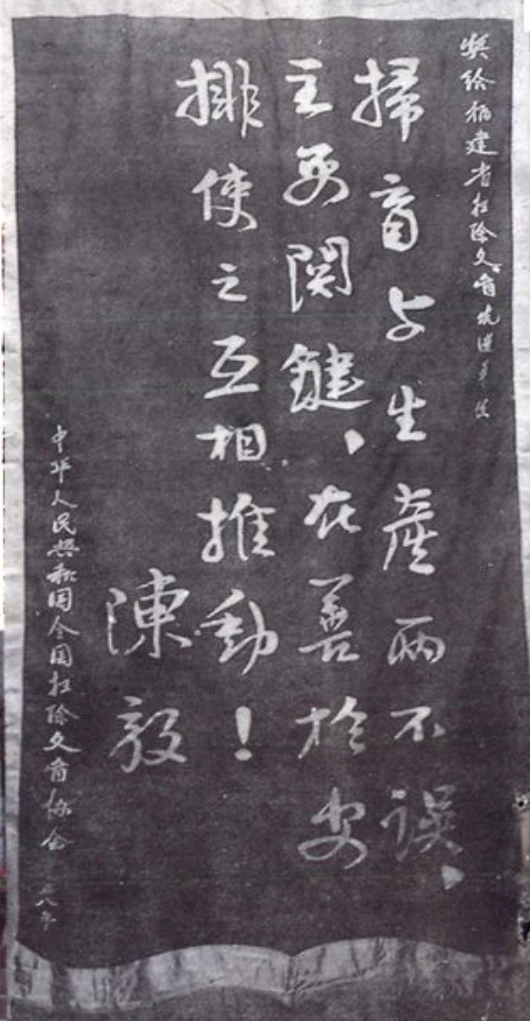 奖给福建省扫除文盲先进单位
掃盲与生產两不误、
主要関鍵、在善於安
排使之互相推動！
陳毅
中华人民共和国全国扫除文盲协会 五八年